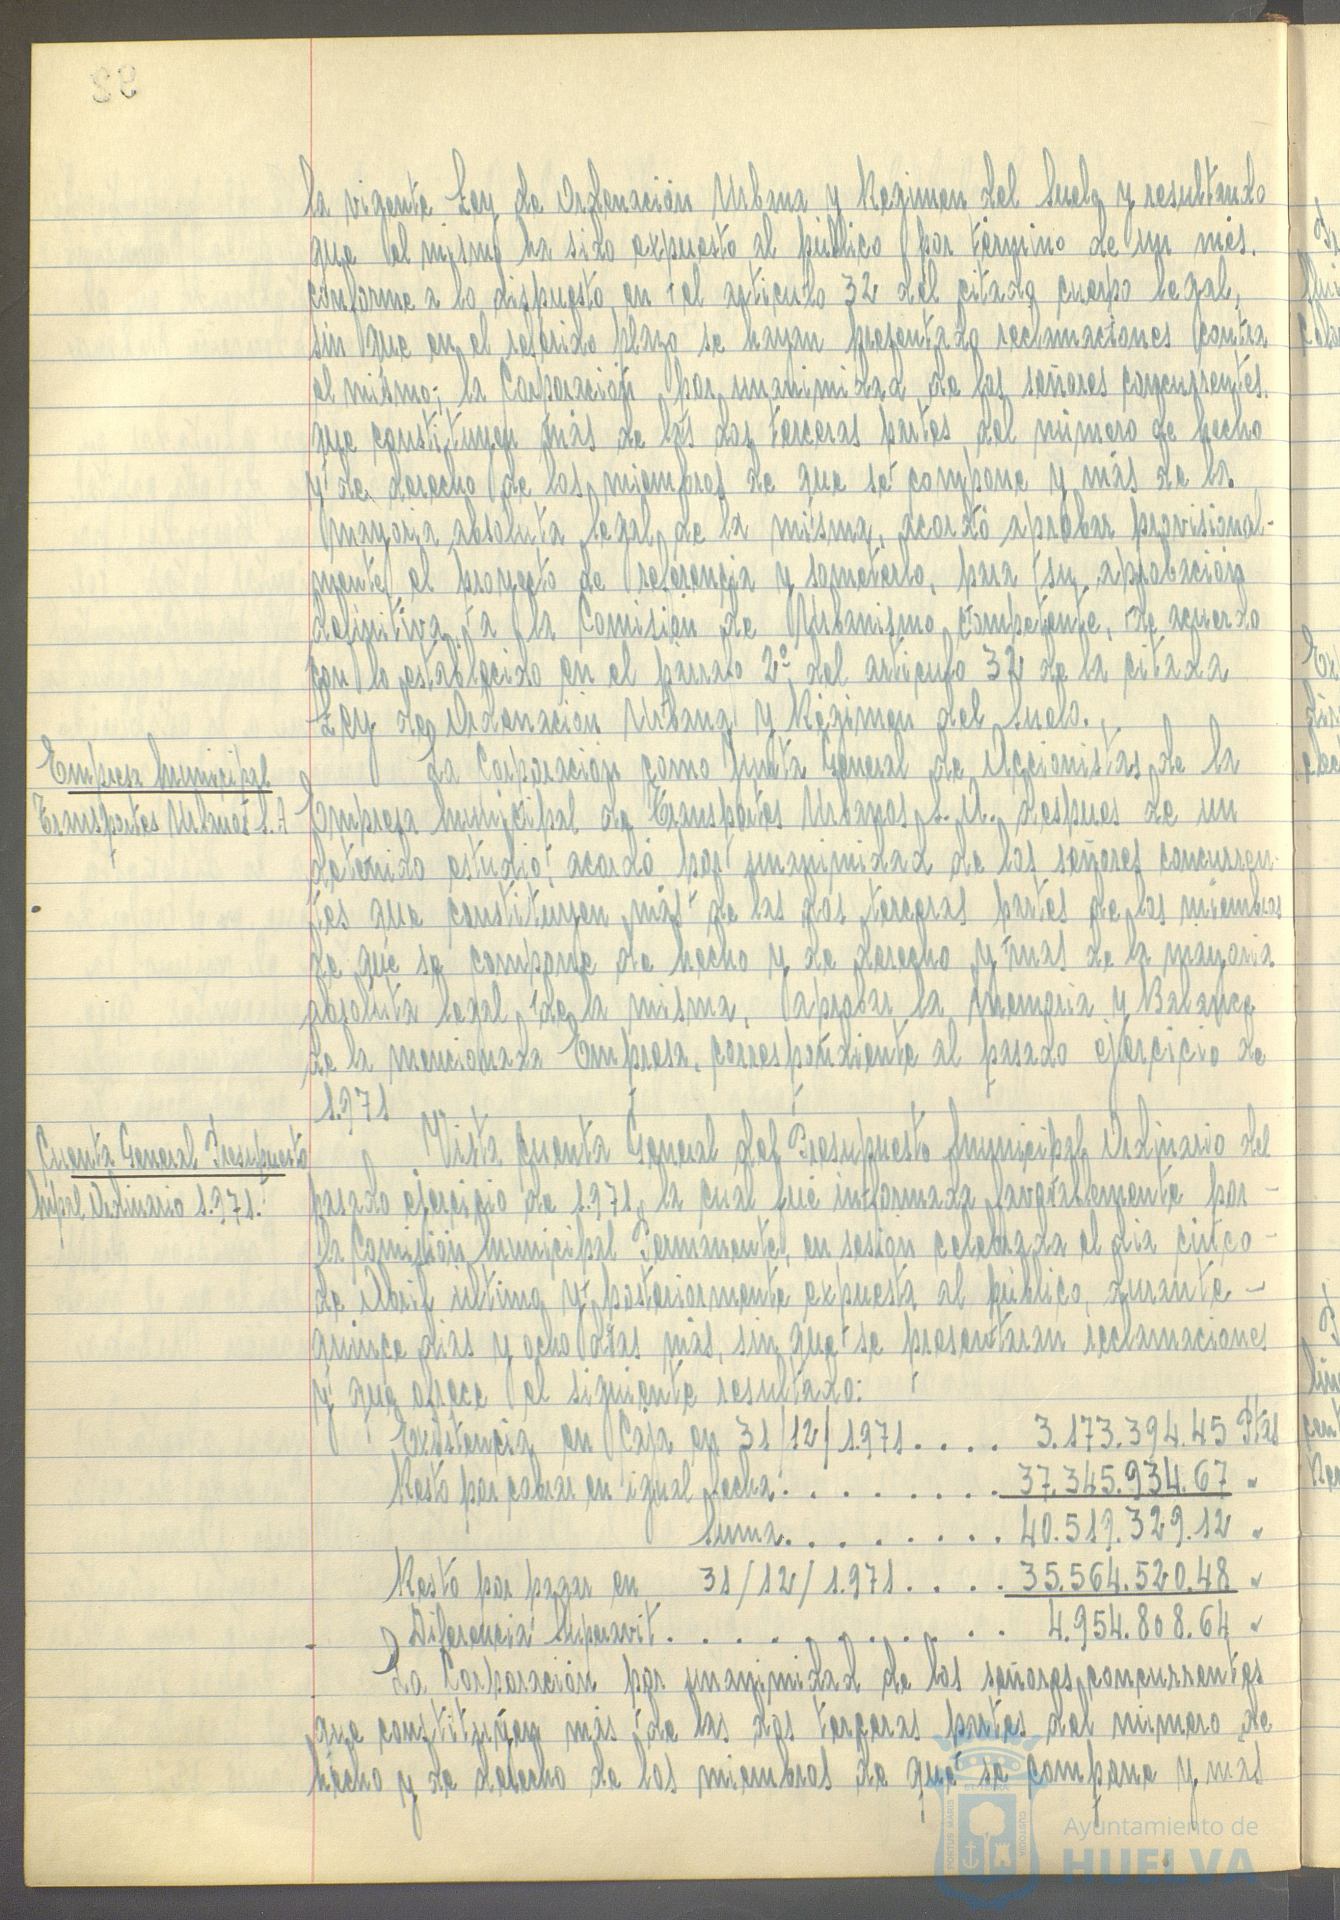 la vigente Ley de Ordenación Urbana y Regimen del Suelo y resultando
que el mismo ha sido expuesto al público por término de un mes,
conforme a lo dispuesto en el articulo 32 del citado cuerpo legal,
sin que en el referido plazo se hayan presentado reclamaciones contra
el mismo; la Corporación por unanimidad de los señores concurrentes,
que constituyen más de las dos terceras partes del número de hecho
y de derecho de los miembros de que se compone y más de la
mayoria absoluta legal de la misma, acordó aprobar provisional-
mente el proyecto de referencia y someterlo, para su aprobación
definitiva a la Comisión de Urbanismo competente, de acuerdo
con lo establecido en el párrafo 2º del articulo 32 de la citada
Ley de Ordenación Urbana y Régimen del Suelo.
Empresa Municipal
Transportes Urbanos S.A
La Corporación como Junta General de Accionistas de la
Empresa Municipal de Transportes Urbanos S.A. despues de un
detenido estudio, acordó por unanimidad de los señores concurren-
tes que constituyen más de las dos terceras partes de los miembros
de que se compone de hecho y de derecho y más de la mayoria
absoluta legal de la misma, aprobar la Memoria y Balance
de la mencionada Empresa, correspondiente al pasado ejercicio de
1.971
Cuenta General Presupuesto
Mpal Ordinario 1.971.
Vista Cuenta General del Presupuesto Municipal Ordinario del
pasado ejercicio de 1.971, la cual fué informada favorablemente por -
la Comisión Municipal Permanente, en sesión celebrada el dia cinco -
de Abril último y posteriormente expuesta al público, durante -
quince dias y ocho dias más, sin que se presentaran reclamaciones
y que ofrece el siguiente resultado:
Existencia en Caja en 31/12/1.971.... 3.173.394.45 Ptas
Resto por cobrar en igual fecha......... 37.345.934.67 "
Suma......... 40.519.329.12 "
Resto por pagar en 31/12/1.971.... 35.564.520.48 "
Diferencia Superavit............ 4.954.808.64 "
La Corporación por unanimidad de los señores concurrentes
que constituyen más de las dos terceras partes del número de
hecho y de derecho de los miembros de que se compone y más
Ayuntamiento de
HUELVA